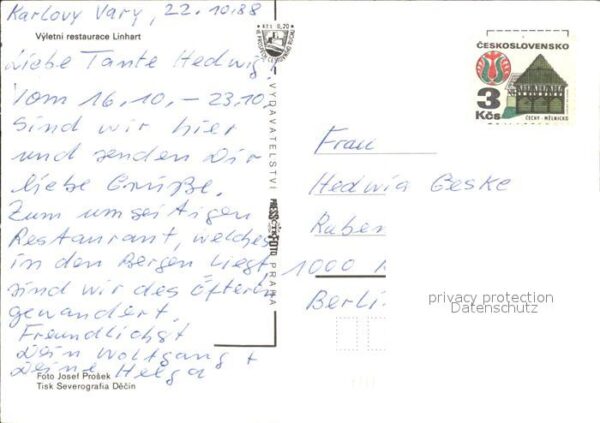 Karlovy Vary, 22.10.88
Výletní restaurace Linhart
Liebe Tante Hedwig,
Vom 16.10. – 23.10.
sind wir hier
und senden Dir
liebe Grüße.
Zum umseitigen
Restaurant, welches
in den Bergen liegt,
sind wir des Öfteren
gewandert.
Freundlichst
Dein Wolfgang +
Deine Helga
Foto Josef Prošek
Tisk Severografia Děčín
Kčs 0,20
VYDAVATELSTVÍ
PRESSFOTO
PRAHA
ČESKOSLOVENSKO
3
Kčs
ČECHY - MĚLNICKO
Frau
Hedwig Geske
Ruben
1000
Berli
privacy protection
Datenschutz